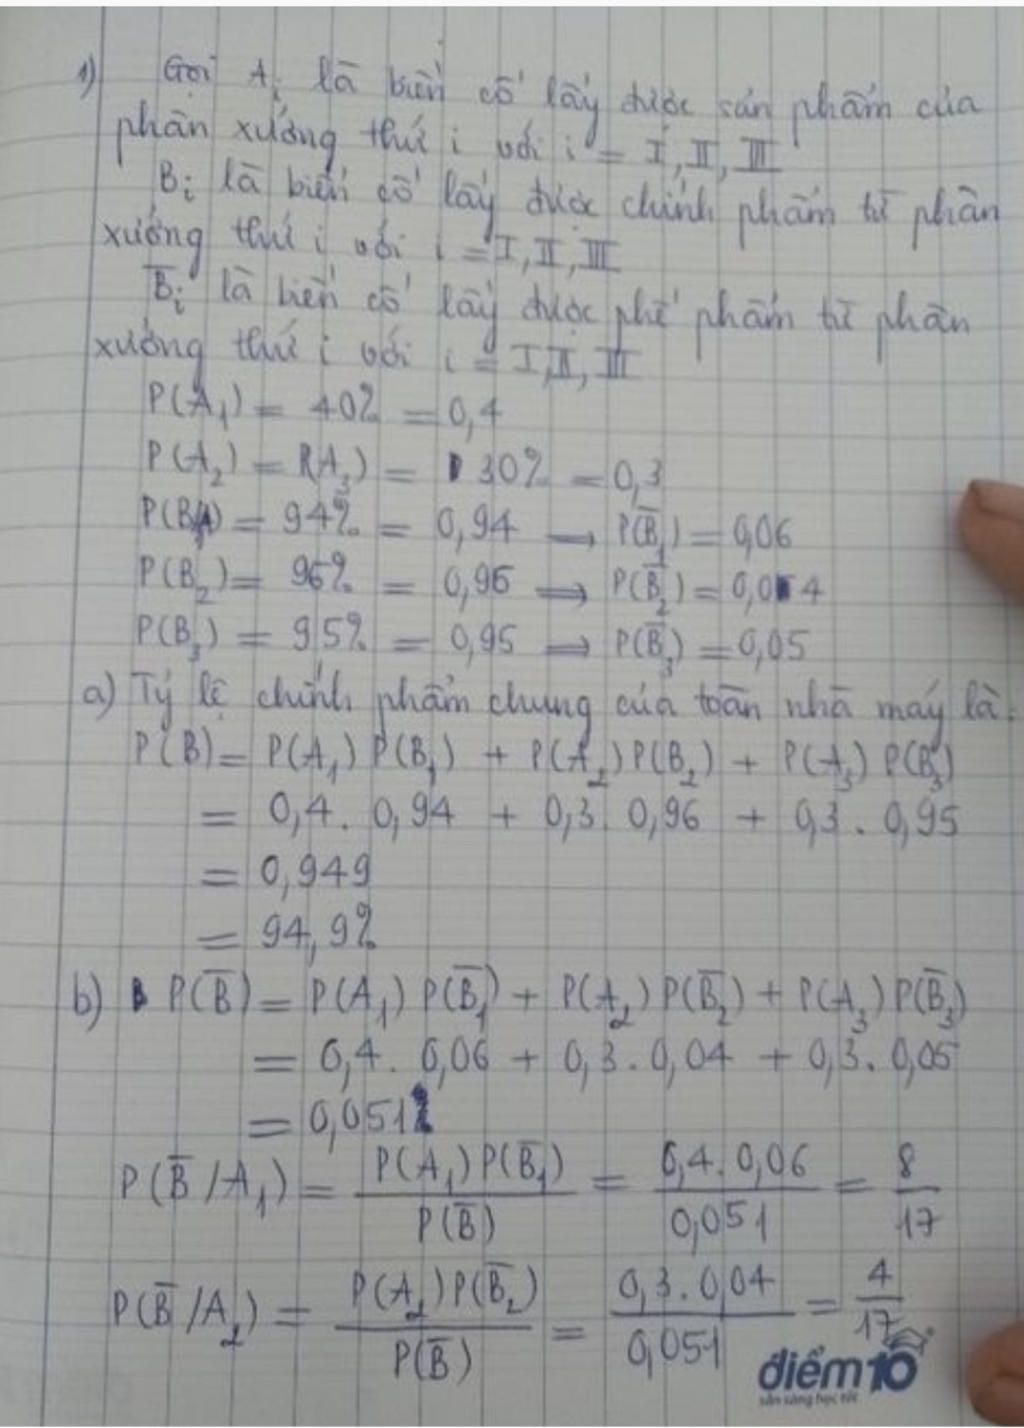 1) Gọi Ai là biến cố lấy được sản phẩm của
phân xưởng thứ i với i = I, II, III
Bi là biến cố lấy được chính phẩm từ phân
xưởng thứ i với i = I, II, III
B̅i là biến cố lấy được phế phẩm từ phân
xưởng thứ i với i = I, II, III
P(A₁) = 40% = 0,4
P(A₂) = P(A₃) = 30% = 0,3
P(B₁) = 94% = 0,94 → P(B̅₁) = 0,06
P(B₂) = 96% = 0,96 ⟹ P(B̅₂) = 0,04
P(B₃) = 95% = 0,95 ⟹ P(B̅₃) = 0,05
a) Tỷ lệ chính phẩm chung của toàn nhà máy là:
P(B) = P(A₁) P(B₁) + P(A₂) P(B₂) + P(A₃) P(B₃)
= 0,4. 0,94 + 0,3. 0,96 + 0,3. 0,95
= 0,949
= 94,9%
b) P(B̅) = P(A₁) P(B̅₁) + P(A₂) P(B̅₂) + P(A₃) P(B̅₃)
= 0,4. 0,06 + 0,3. 0,04 + 0,3. 0,05
= 0,051
P(B̅/A₁) = P(A₁) P(B̅₁) / P(B̅) = 0,4. 0,06 / 0,051 = 8/17
P(B̅/A₂) = P(A₂) P(B̅₂) / P(B̅) = 0,3. 0,04 / 0,051 = 4/17
điểm10
sẵn sàng học tốt